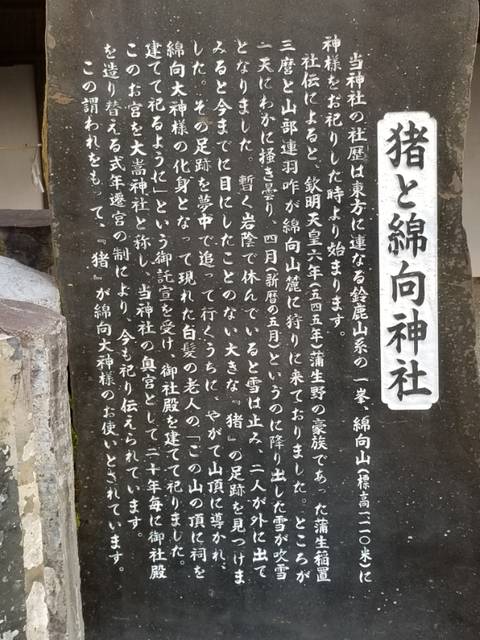 猪と綿向神社
当神社の社歴は東方に連なる鈴鹿山系の一峯、綿向山(標高一一一〇米)に
神様をお祀りした時より始まります。
社伝によると、欽明天皇六年(五四五年)蒲生野の豪族であった蒲生稲置
三麿と山部連羽咋が綿向山麓に狩りに来ておりました。ところが
一天にわかに掻き曇り、四月(新暦の五月)というのに降り出した雪が吹雪
となりました。暫く岩陰で休んでいると雪は止み、二人が外に出て
みると今までに目にしたことのない大きな『猪』の足跡を見つけま
した。その足跡を夢中で追って行くうちに、やがて山頂に導かれ、
綿向大神様の化身となって現れた白髪の老人の「この山の頂に祠を
建てて祀るように」という御託宣を受け、御社殿を建てて祀りました。
このお宮を大嵩神社と称し、当神社の奥宮として二十年毎に御社殿
を造り替える式年遷宮の制により、今も祀り伝えられています。
この謂われをもって、『猪』が綿向大神様のお使いとされています。